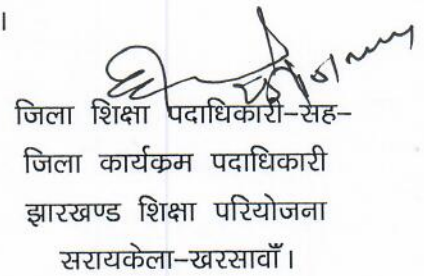 ।
जिला शिक्षा पदाधिकारी-सह-
जिला कार्यक्रम पदाधिकारी
झारखण्ड शिक्षा परियोजना
सरायकेला-खरसावाँ।